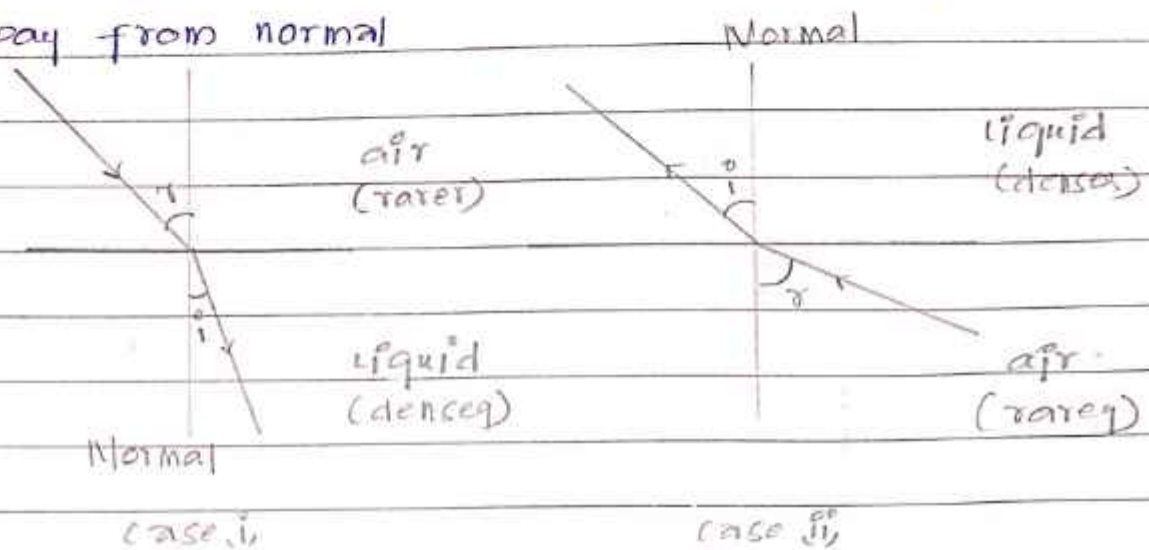 from normal
Normal
air
(rarer)
r
i
liquid
(denser)
Normal
case i,
i
liquid
(denser)
r
air
(rarer)
case ii,